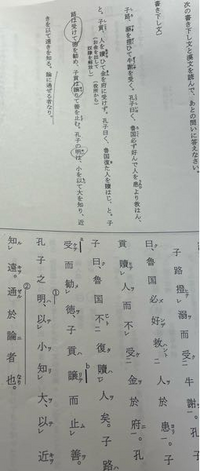 次の書き下し文と漢文を読んで、あとの問いに答えなさい。
(書き下し文)
子路、溺を拯ひて牛謝を受く。孔子曰く、魯国必ず好んで人を患より救はん、
と。子貢、人を贖ひて金を府に受けず。孔子曰く、魯国復た人を贖はじ、と。子
路は受けて徳を勧め、子貢は譲りて善を止む。孔子の明は、小を以て大を知り、近
きを以て遠きを知る。論に通ずる者なり。
子路拯溺而受牛謝。孔子
曰、魯国必好救人於患。子
貢贖人而不受金於府。孔
子曰、魯国不復贖人矣。子路
受而勧徳、子貢譲而止善。
孔子之明、以小知大、以近
知遠。通於論者也。